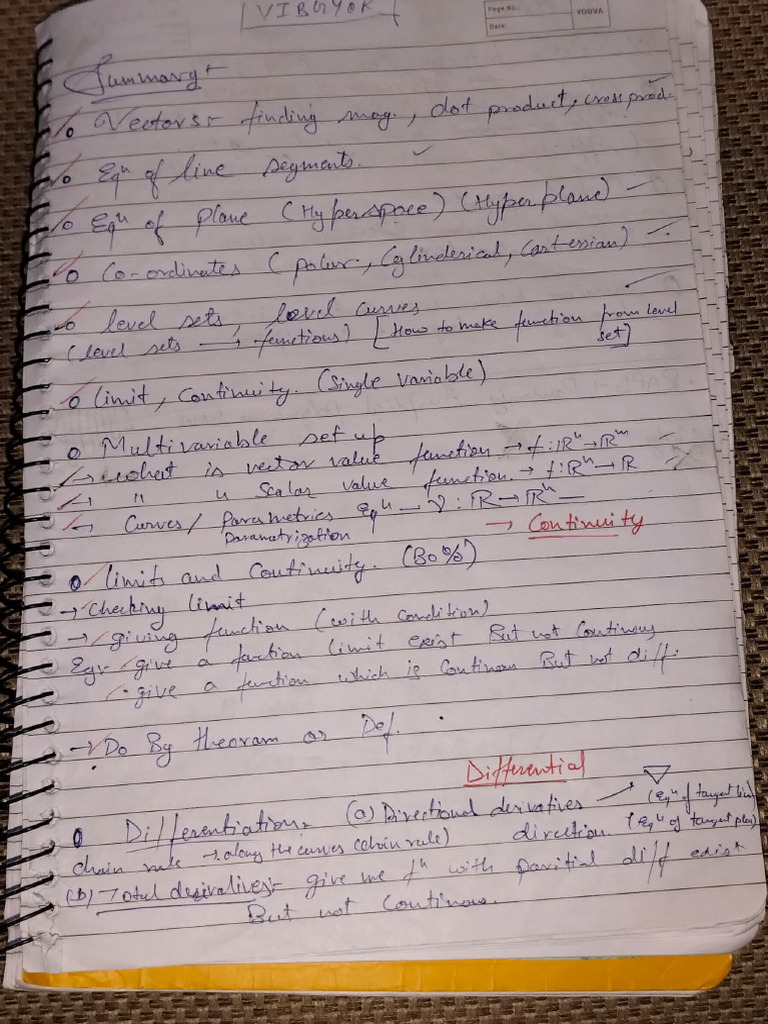 VIBGYOR
Page No.:
Date:
YOUVA
Summary:-
Vectors:- finding mag., dot product, cross prod.
Eqⁿ of line segments.
Eqⁿ of plane (Hyperspace) (Hyperplane)
Co-ordinates (polar, Cylinderical, Cartessian)
level sets, level curves
(level sets → functions) [How to make function from level set]
limit, Continuity. (Single variable)
Multivariable set up
→ what is vector value function → f: ℝⁿ→ℝᵐ
→ " " Scalar value function. → f: ℝⁿ→ℝ
→ Curves/ Parametrics Eqⁿ → γ: ℝ→ℝⁿ
Parametrization
→ Continuity
limits and Continuity. (80%)
→ Checking limit
→ giving function (with condition)
Eg:- give a function limit exist But not Continous
• give a function which is Continous But not diff.
→ Do By theoram or Def.
Differential
Differentiation:- (a) Directional derivatives → ▽ (Eqⁿ of tangent line)
chain rule → along the curves (chain rule) direction. (Eqⁿ of tangent plan)
(b) Total desivalives:- give me fⁿ with paritial diff exist
But not Continous.